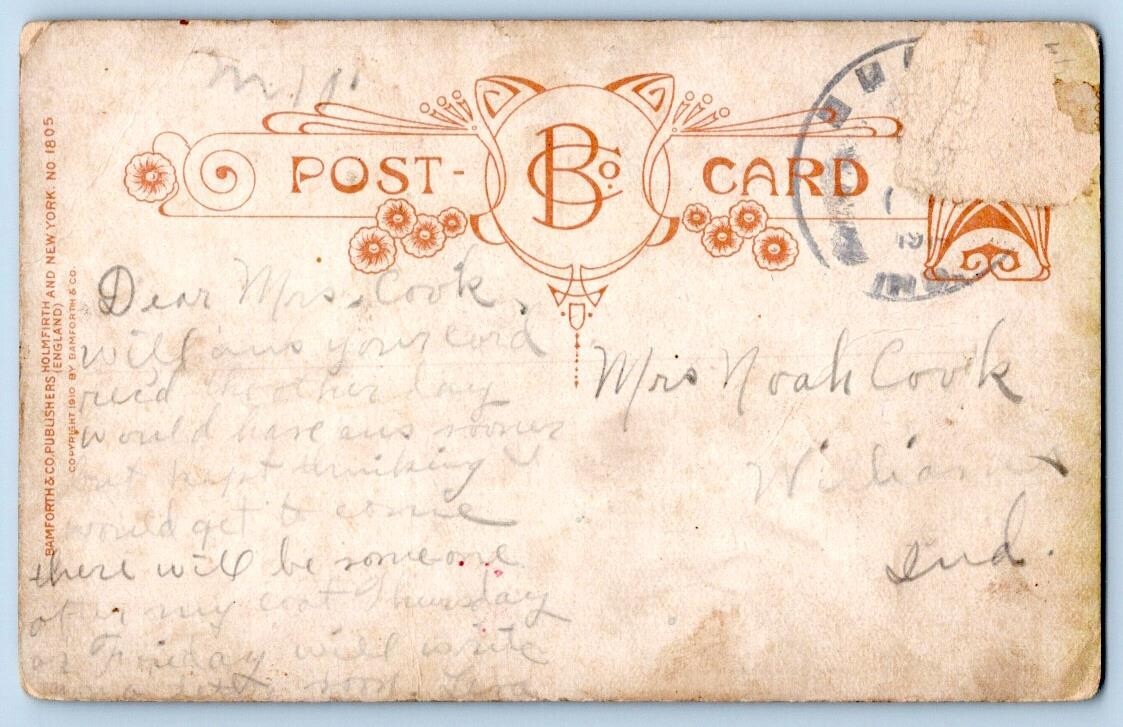 POST- BCo. CARD
BAMFORTH & CO. PUBLISHERS HOLMFIRTH AND NEW YORK. NO 1805
(ENGLAND)
COPYRIGHT 1910 BY BAMFORTH & CO.
Dear Mrs. Cook,
will ans your card
rec'd the other day
would have ans sooner
but kept thinking I
would get to come
there will be someone
after my coat Thursday
or Friday will write
you a letter soon. Lena
Mrs Noah Cook
Williams
Ind.